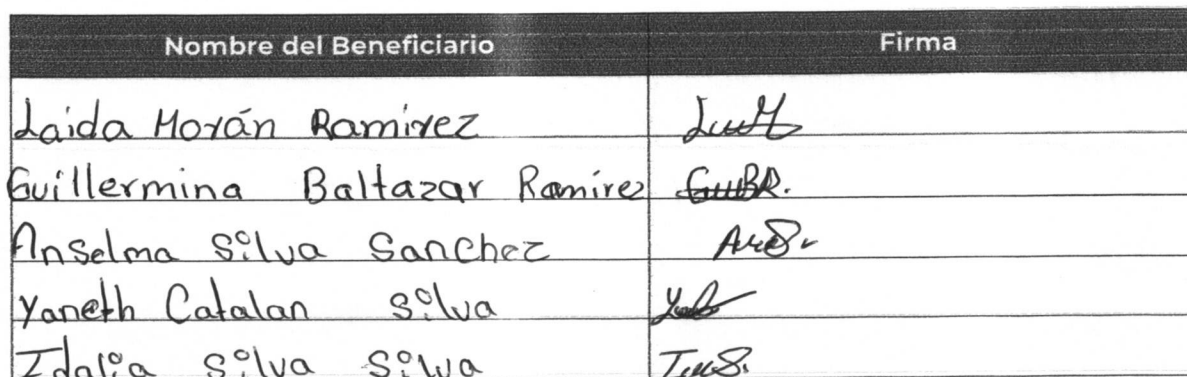 Nombre del Beneficiario Firma
Laida Morán Ramirez
Guillermina Baltazar Ramirez GuiBR.
Anselma Silva Sanchez
Yaneth Catalan Silva
Idalia Silva Silva